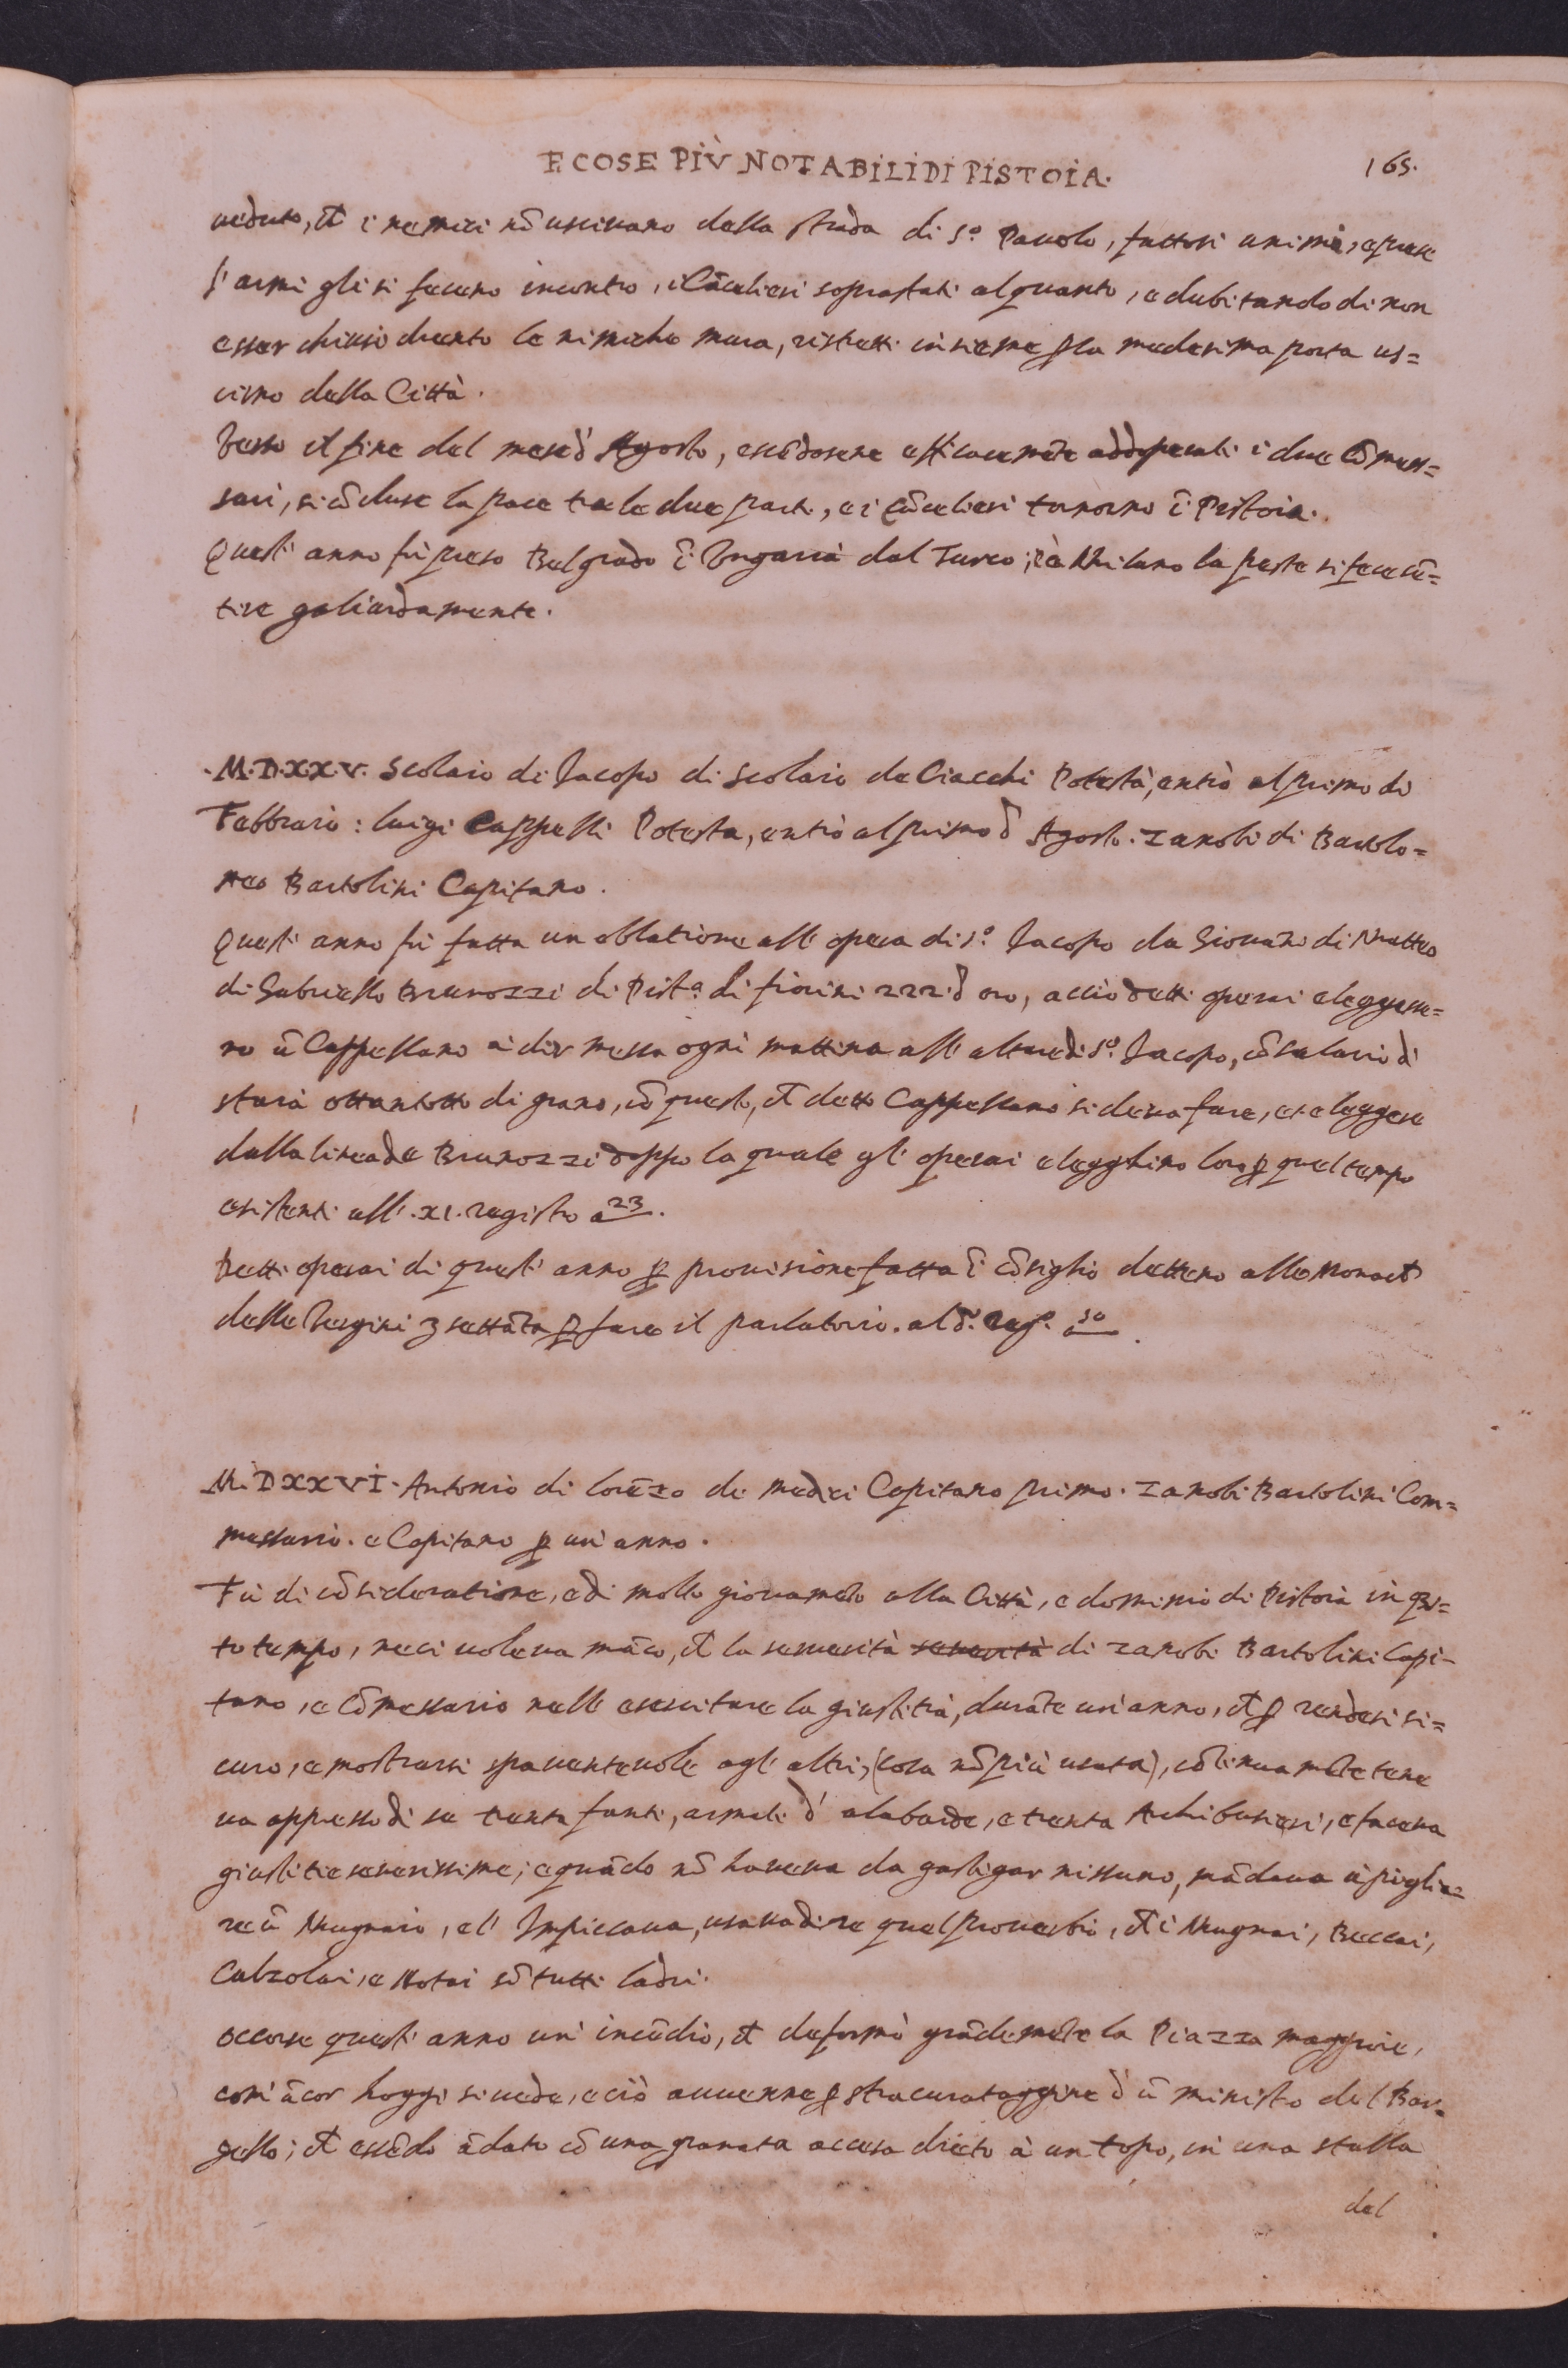 E COSE PIÙ NOTABILI DI PISTOIA. 165.
ueduto, ch̃ i nemici nõ usciuano della strada di S.º Pauolo, fattosi animo, e prese
l'armi gli si fecero incontro, i Cãcelieri soprastati alquanto, e dubitando di non
esser chiusi drento le nimiche mura, ristretti insieme p̱ la medesima porta us=
cirno della Città.
Verso il fine del mese d' Agosto, essẽdosene efficacemẽte addoperati i due Cõmes=
sari, si cõcluse la pace tra le due parti, e i Cãcelieri tornorno ĩ Pistoia.
Quest' anno fù preso Belgrado ĩ Vngaria dal Turco; e à Milano la peste si fece sẽ=
tire galiardamente.
.M.D.X.X.V. Scolaio di Jacopo di Scolaio de Ciacchi Potestà, entrò al primo di
Febbraio: luigi Cappelli Potesta, entrò al primo d' Agosto. Zanobi di Bartolo=
meo Bartolini Capitano.
Quest' anno fù fatta un oblatione all' opera di S.º Jacopo da Giouãni di Matteo
di Gabriello Brunozzi di Pist.ª di fiorini 222. d' oro, acciò detti operai eleggesse=
ro ũ Cappellano à dir messa ogni mattina all' altare di S.º Jacopo, cõ salario di
staia ottantotto di grano, cõ questo, ch̃ detto Cappellano si deua fare, et eleggere
dalla linea de Brunozzi doppo la quale gl' operai elegghino loro p̱ quel tempo
esistenti all' .XI. registro a 23.
Detti operai di quest' anno p̱ prouisione fatta ĩ cõsiglio dettero alle Monach̃
delle Vergini ʒ settãta p̱ fare il parlatorio. al d.º reg.º a 50.
M.DXXVI. Antonio di Lorẽzo de Medici Capitano primo. Zanobi Bartolini Com=
messario. e Capitano p̱ un' anno.
Fù di cõsideratione, e di molto giouamẽto alla Città, e dominio di Pistoia in q̃s=
to tempo, ne ci uoleua mãco, ch̃ la seuerità seuerità di Zanobi Bartolini Capi=
tano, e Cõmessario nell' esercitare la giustitia, durãte un' anno, ch̃ p̱ rendersi si=
curo, e mostrarsi spauenteuole agl' altri, (cosa nõ più usata), cõtinuamẽte tene
ua appresso di se trenta fanti, armati d' alabarde, e trenta Archibusieri, e faceua
giustitie seuerissime; e quãdo nõ haueua da gastigar nissuno, mãdaua à piglia=
re ũ Mugnaio, e l' Impiccaua, usaua dire quel prouerbio, ch̃ i Mugnai, Beccai,
Calzolai, e Notai sõ tutti ladri.
Occorse quest' anno un' incẽdio, ch̃ deformò grãdemẽte la Piazza maggiore,
comi ãcor hoggi si uede, e ciò auuenne p̱ stracurataggine d' ũ ministro del Bar=
gello; ch̃ essẽdo ãdato cõ una granata accesa drieto à un topo, in una stalla
del